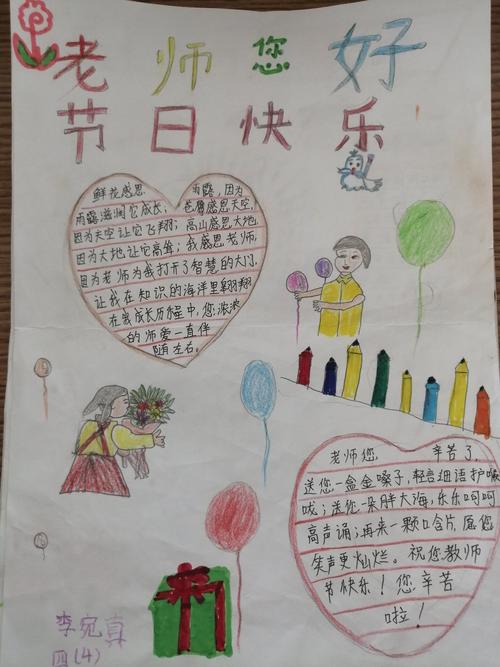 老师您好
节日快乐
鲜花感恩 雨露,因为
雨露滋润它成长;苍鹰感恩天空,
因为天空让它飞翔;高山感恩大地,
因为大地让它高耸;我感恩老师,
因为老师为我打开了智慧的大门,
让我在知识的海洋里翱翔
在我成长历程中,您浓浓
的师爱一直伴
随左右。
老师您 辛苦了,
送您一盒金嗓子,轻言细语护喉
咙;送您一朵胖大海,乐乐呵呵
高声诵;再来一颗口含片,愿您
笑声更灿烂。祝您教师
节快乐!您辛苦
啦!
李宛真
四(4)